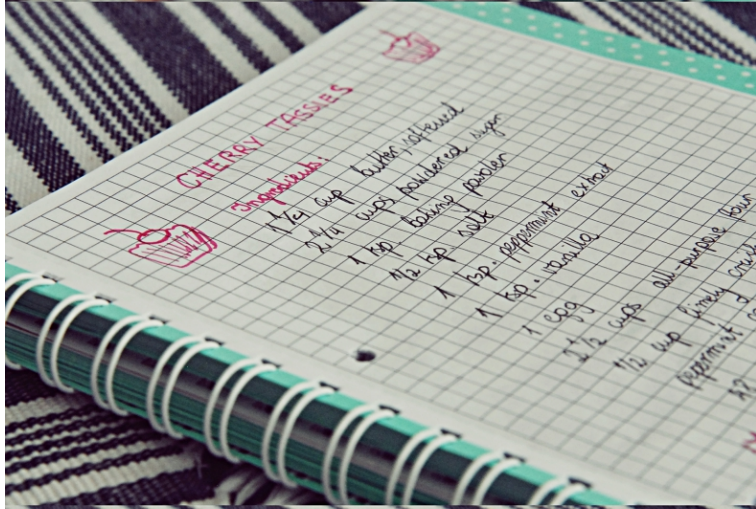 CHERRY TASSIES
Ingredients:
1 1/4 cup butter, softened
2 1/4 cups powdered sugar
1 tsp. baking powder
1/2 tsp salt
1 tsp. peppermint extract
1 tsp. vanilla
1 egg
2 1/2 cups all-purpose flour
1/2 cup finely
peppermint